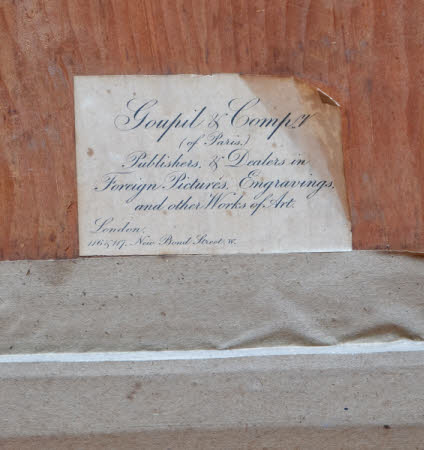 Goupil & Compy
(of Paris,)
Publishers, & Dealers in
Foreign Pictures, Engravings,
and other Works of Art.
London,
116 & 117, New Bond Street, W.